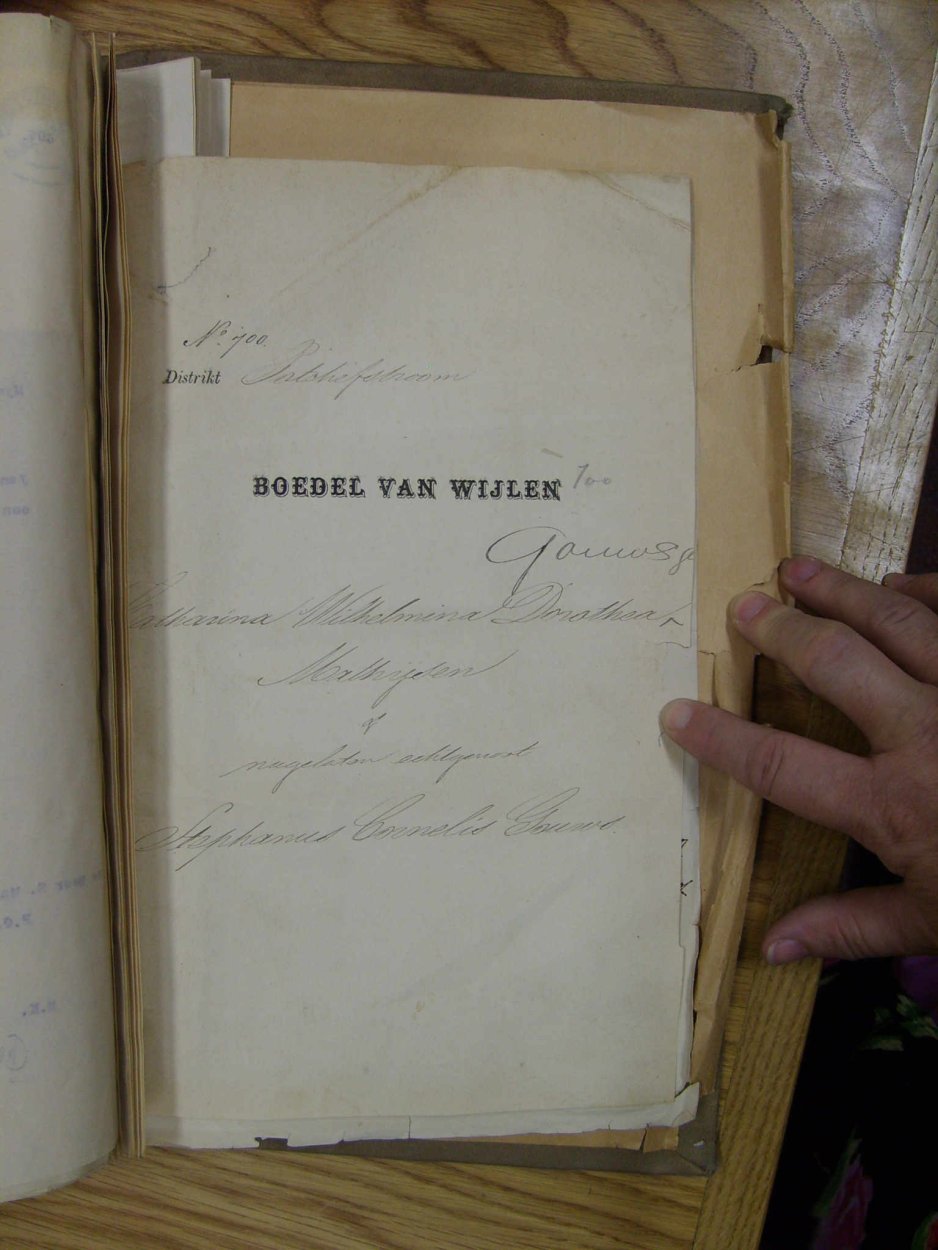 No. 700.
Distrikt Potchefstroom
BOEDEL VAN WIJLEN 700
Gouws
Katharina Wilhelmina Dorothea
Mathysen
nagelaten echtgenoot
Stephanus Cornelis Gouws.